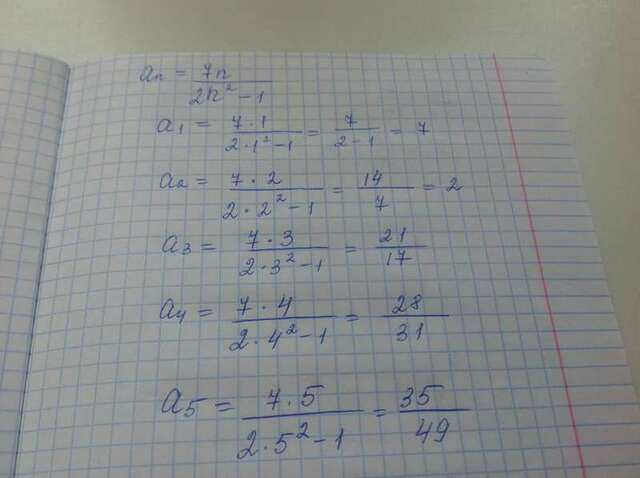 aₙ = 7n / 2n² - 1
a₁ = 7 · 1 / 2 · 1² - 1 = 7 / 2 - 1 = 7
a₂ = 7 · 2 / 2 · 2² - 1 = 14 / 7 = 2
a₃ = 7 · 3 / 2 · 3² - 1 = 21 / 17
a₄ = 7 · 4 / 2 · 4² - 1 = 28 / 31
a₅ = 7 · 5 / 2 · 5² - 1 = 35 / 49